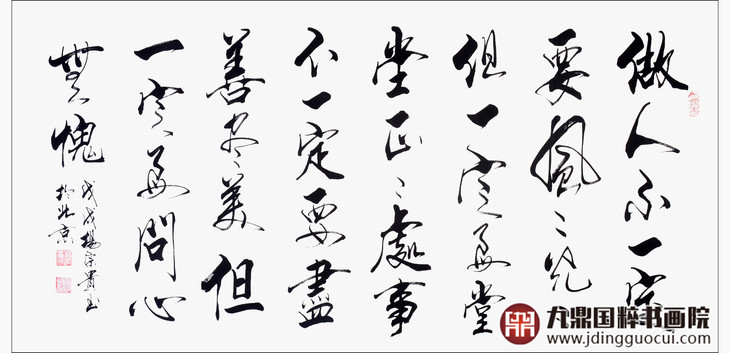 做人不一定
要風々光々
但一定要堂
堂正々處事
不一定要盡
善尽美但
一定要問心
無愧
戊戌楊宗貴書
於北京
九鼎国粹书画院
www.jdingguocui.com